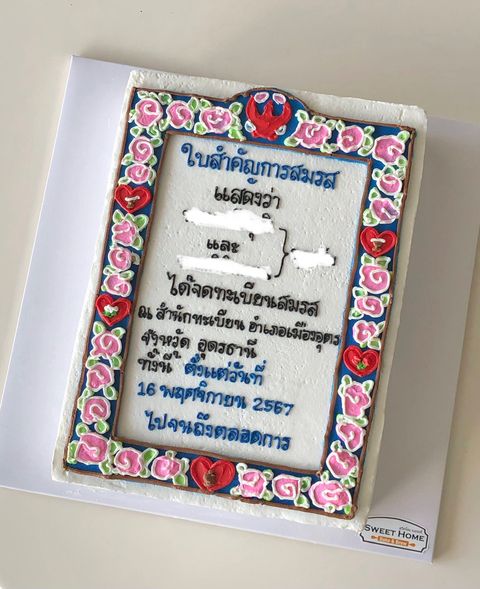 ใบสำคัญการสมรส
แสดงว่า
และ
ได้จดทะเบียนสมรส
ณ สำนักทะเบียน อำเภอเมืองอุดร
จังหวัด อุดรธานี
ทั้งนี้ ตั้งแต่วันที่
16 พฤศจิกายน 2567
ไปจนถึงตลอดการ
SWEET HOME
Bake & Brew